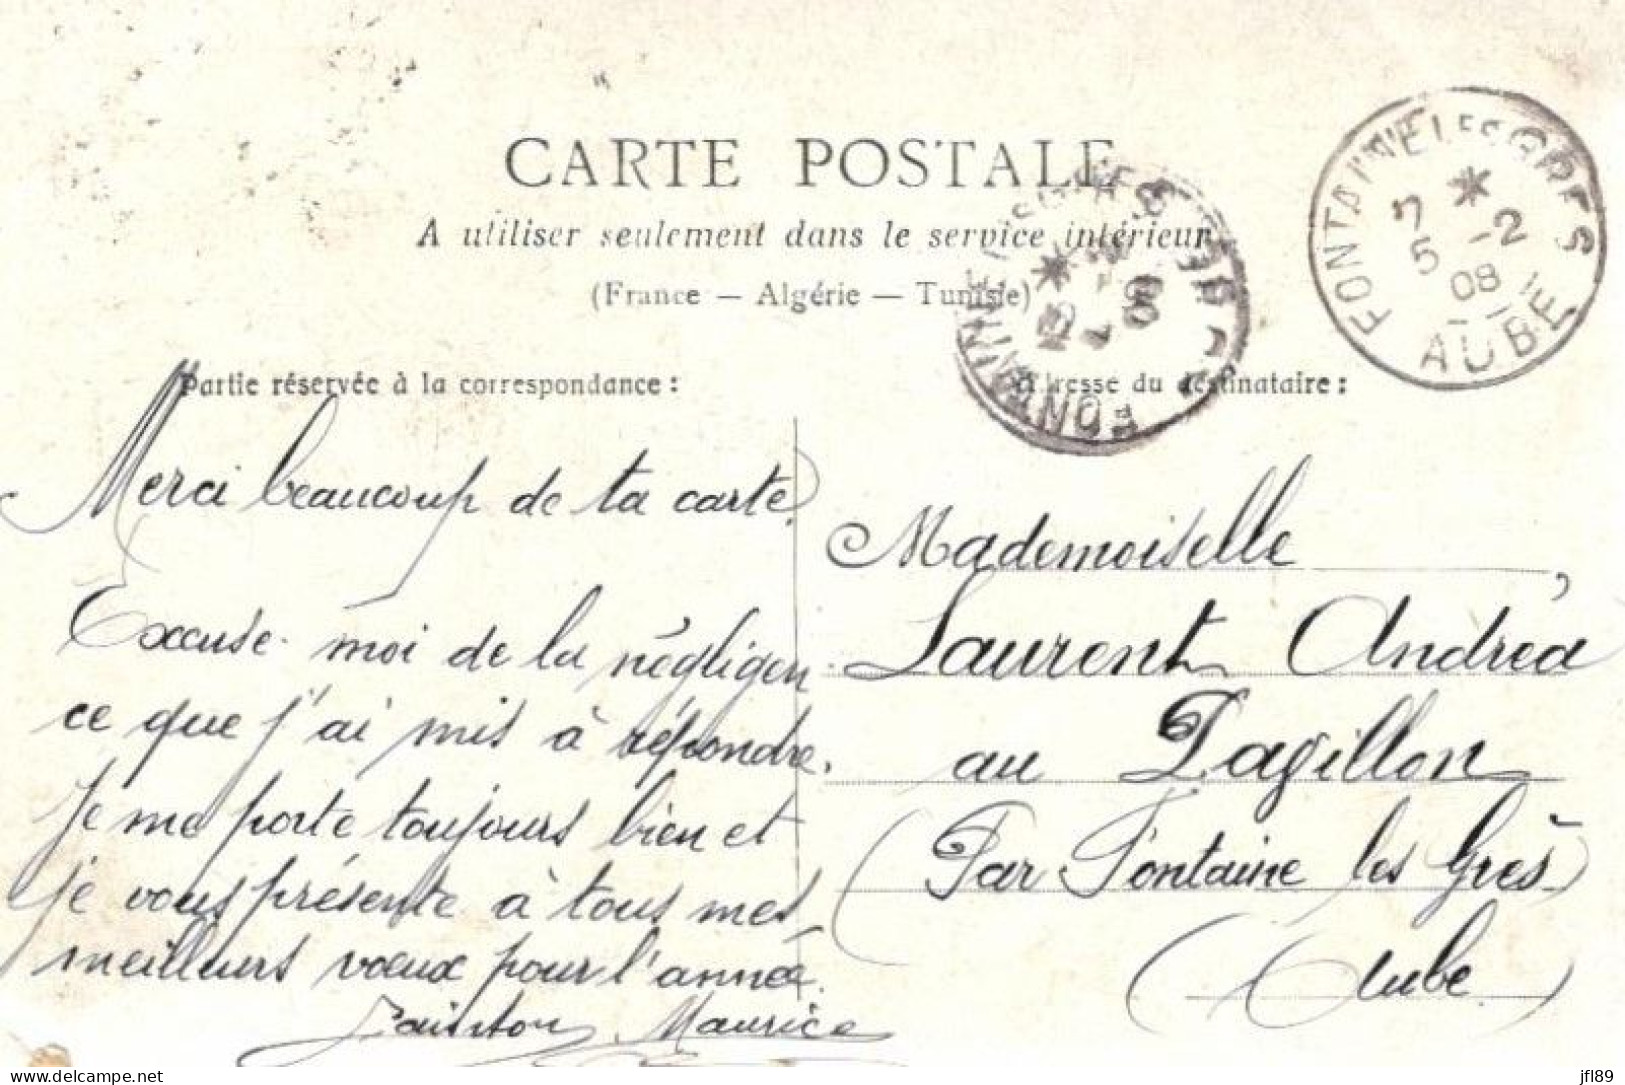 CARTE POSTALE
A utiliser seulement dans le service intérieur
(France — Algérie — Tunisie)
FONTAINE LES GRES
7 *
5 -2
08
AUBE
FONTAINE
Partie réservée à la correspondance :
Adresse du destinataire :
Merci beaucoup de ta carte.
Excuse-moi de la négligen
ce que j'ai mis à répondre.
Je me porte toujours bien et
je vous présente à tous mes
meilleurs vœux pour l'année.
Maurice
Mademoiselle
Laurent Andréa
au Pagillon
(Par Fontaine les Grès)
(Aube)
delcampe.net
jfl89